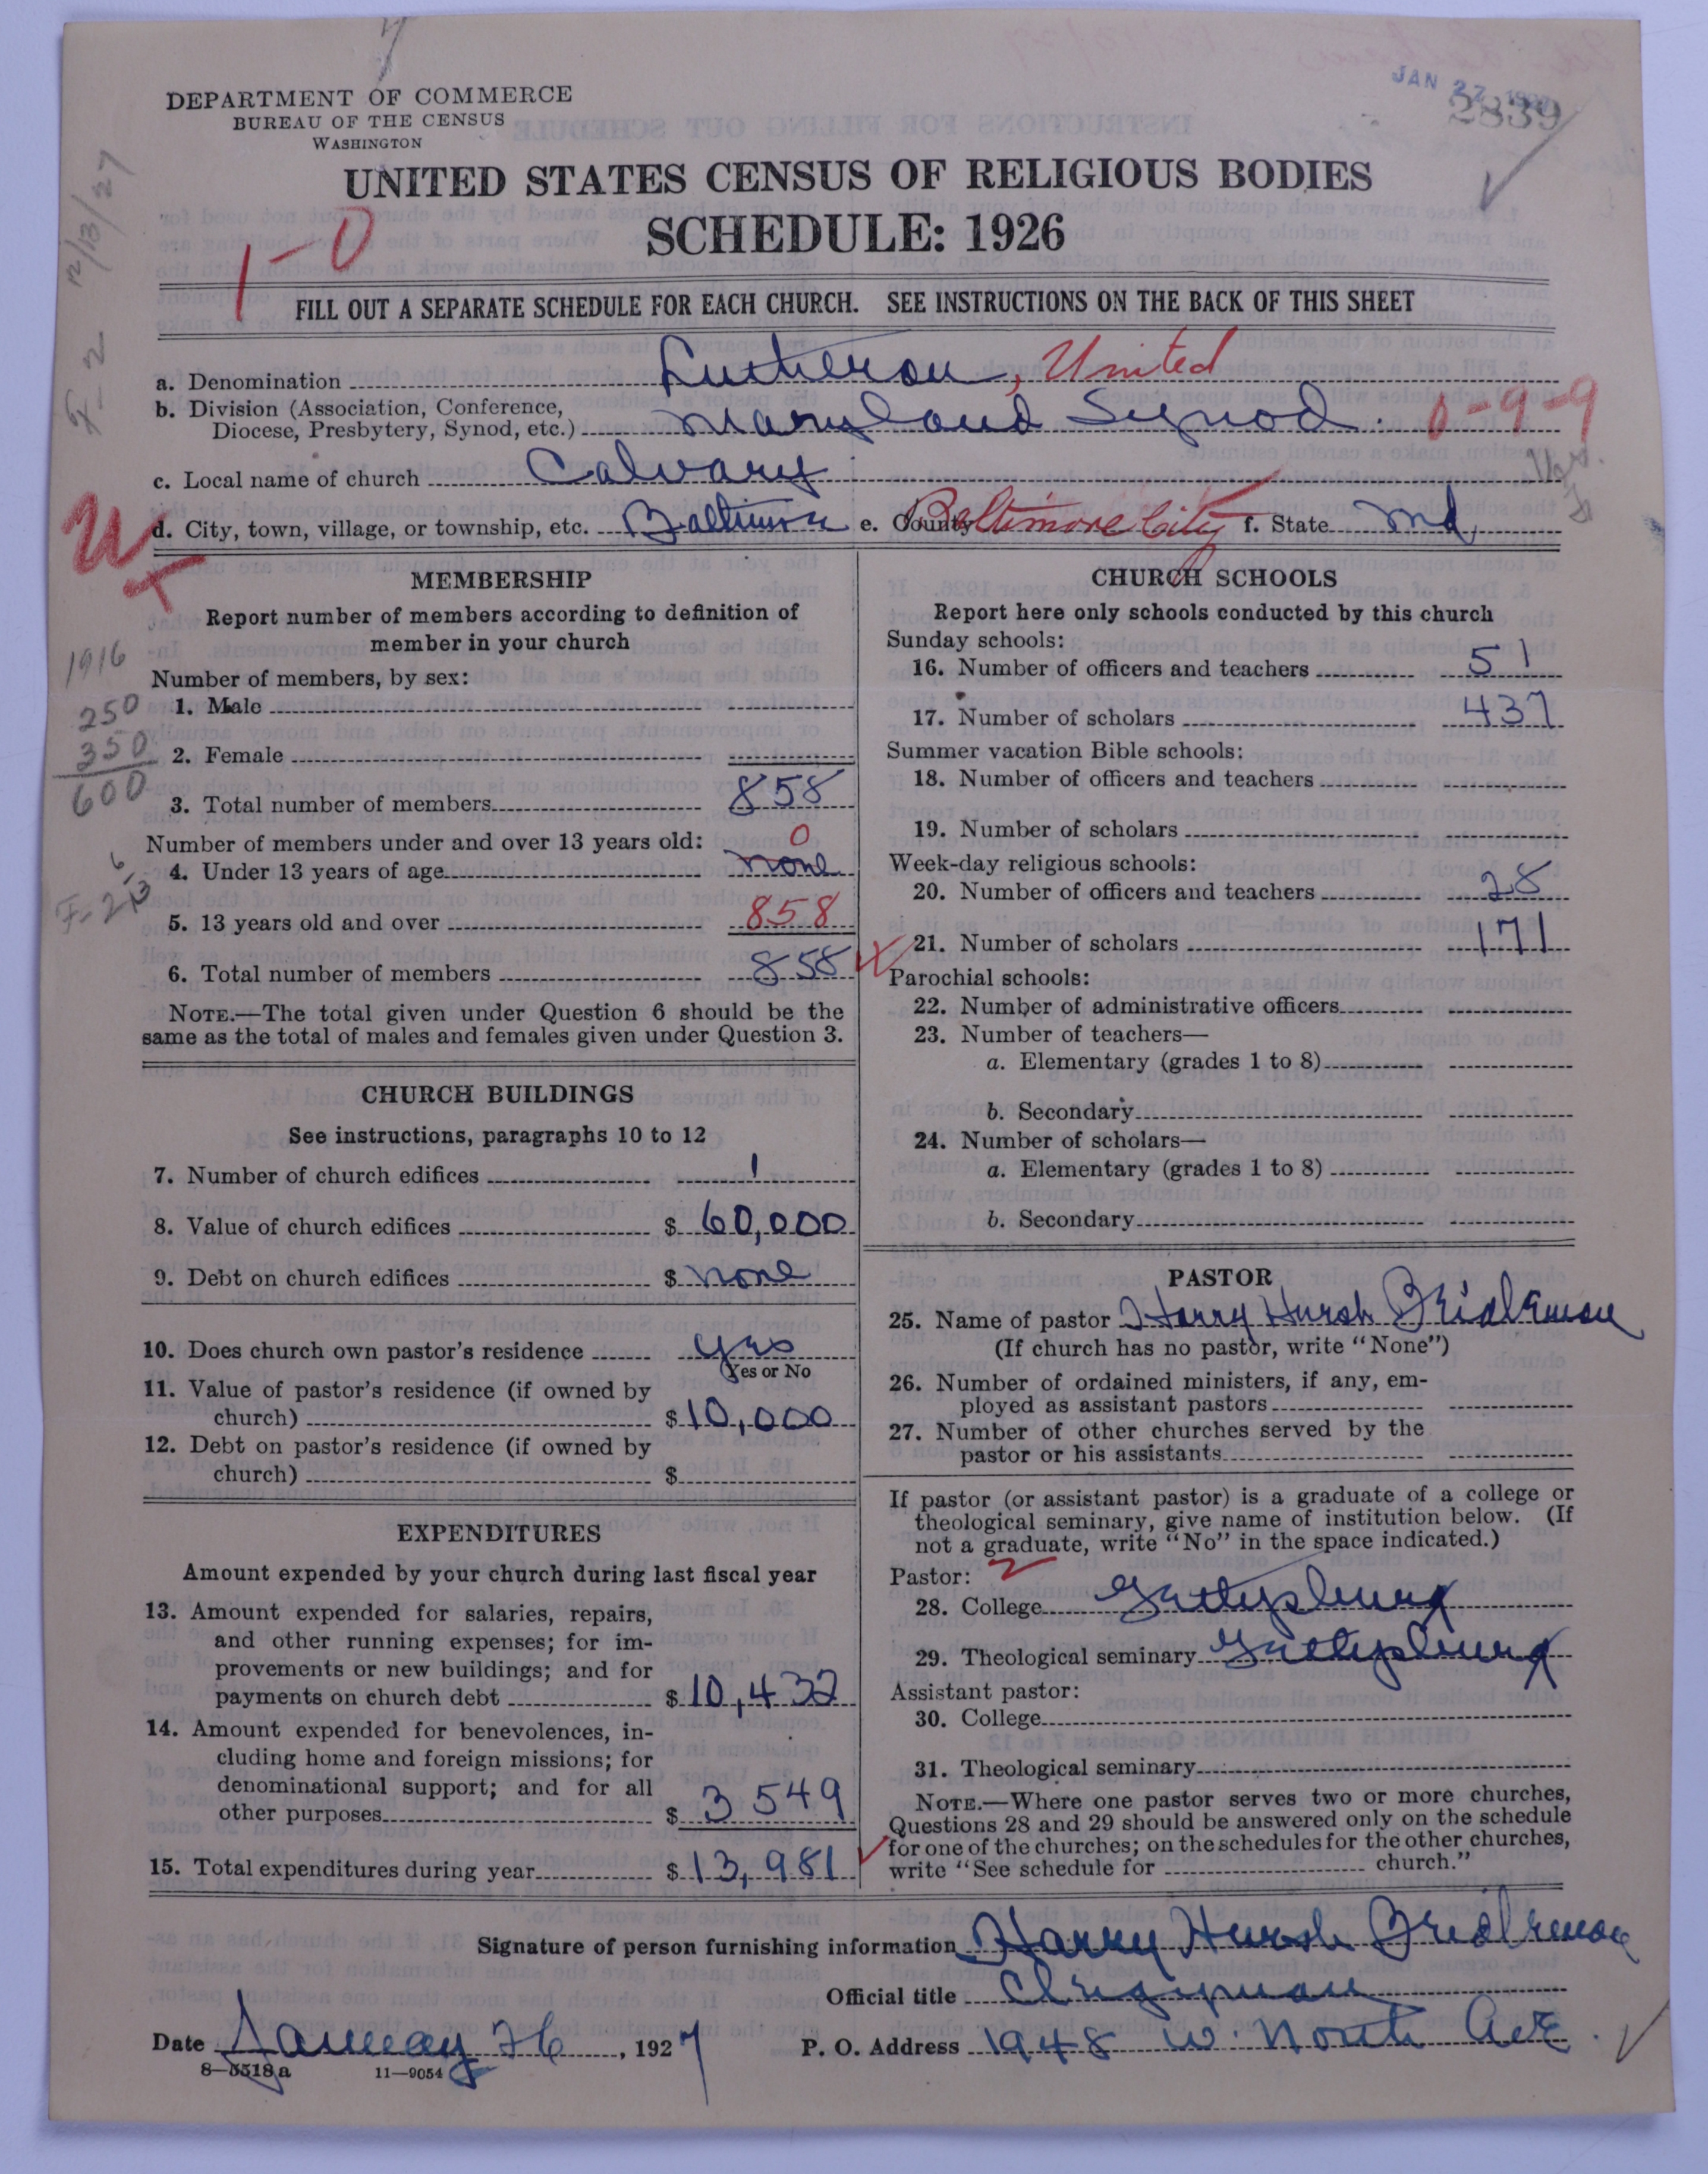 DEPARTMENT OF COMMERCE
BUREAU OF THE CENSUS
WASHINGTON
JAN 27
2839
UNITED STATES CENSUS OF RELIGIOUS BODIES
SCHEDULE: 1926
1-0
12/13/27
FILL OUT A SEPARATE SCHEDULE FOR EACH CHURCH. SEE INSTRUCTIONS ON THE BACK OF THIS SHEET
a. Denomination Lutheran, United
b. Division (Association, Conference,
Diocese, Presbytery, Synod, etc.) Maryland Synod. 0-9-9
c. Local name of church Calvary
d. City, town, village, or township, etc. Baltimore e. County Baltimore City f. State Md.
MEMBERSHIP
Report number of members according to definition of
member in your church
1916
Number of members, by sex:
250
1. Male
350
2. Female
600
3. Total number of members 858
Number of members under and over 13 years old: 0
4. Under 13 years of age none
5. 13 years old and over 858
6. Total number of members 858
NOTE.—The total given under Question 6 should be the
same as the total of males and females given under Question 3.
CHURCH BUILDINGS
See instructions, paragraphs 10 to 12
7. Number of church edifices 1
8. Value of church edifices $ 60,000
9. Debt on church edifices $ none
10. Does church own pastor's residence yes
Yes or No
11. Value of pastor's residence (if owned by
church) $ 10,000
12. Debt on pastor's residence (if owned by
church) $
EXPENDITURES
Amount expended by your church during last fiscal year
13. Amount expended for salaries, repairs,
and other running expenses; for im-
provements or new buildings; and for
payments on church debt $ 10,432
14. Amount expended for benevolences, in-
cluding home and foreign missions; for
denominational support; and for all
other purposes $ 3 549
15. Total expenditures during year $ 13,981
CHURCH SCHOOLS
Report here only schools conducted by this church
Sunday schools:
16. Number of officers and teachers 51
17. Number of scholars 437
Summer vacation Bible schools:
18. Number of officers and teachers
19. Number of scholars
Week-day religious schools:
20. Number of officers and teachers 28
21. Number of scholars 171
Parochial schools:
22. Number of administrative officers
23. Number of teachers—
a. Elementary (grades 1 to 8)
b. Secondary
24. Number of scholars—
a. Elementary (grades 1 to 8)
b. Secondary
PASTOR
25. Name of pastor Harry Hursh Beidleman
(If church has no pastor, write "None")
26. Number of ordained ministers, if any, em-
ployed as assistant pastors
27. Number of other churches served by the
pastor or his assistants
If pastor (or assistant pastor) is a graduate of a college or
theological seminary, give name of institution below. (If
not a graduate, write "No" in the space indicated.)
Pastor: 2
28. College Gettysburg
29. Theological seminary Gettysburg
Assistant pastor:
30. College
31. Theological seminary
NOTE.—Where one pastor serves two or more churches,
Questions 28 and 29 should be answered only on the schedule
for one of the churches; on the schedules for the other churches,
write "See schedule for church."
Signature of person furnishing information Harry Hursh Beidleman
Official title Clergyman
Date January 26, 1927 P. O. Address 1948 W. North Ave.
8—5518 a 11—9054